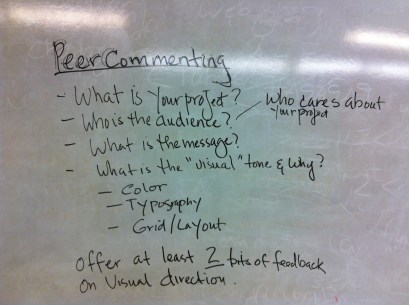 Peer Commenting
- What is your project?
- Who is the audience? who cares about your project
- What is the message?
- What is the "visual" tone & why?
- Color
- Typography
- Grid/Layout
Offer at least 2 bits of feedback
on visual direction.